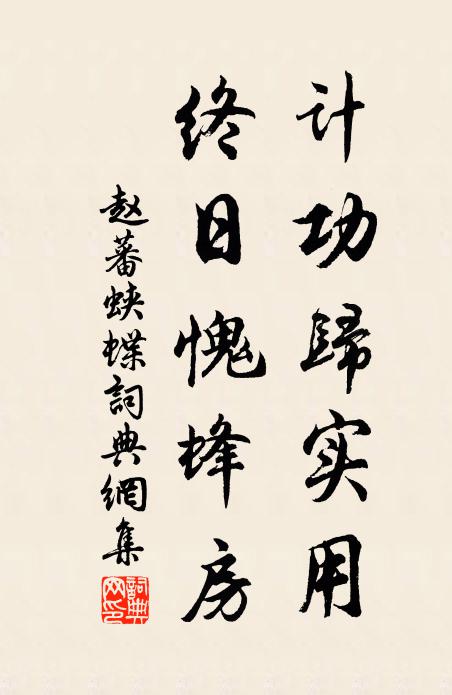 计功歸实用
终日愧蜂房
赵蕃蛱蝶詞典網集
詞典网印